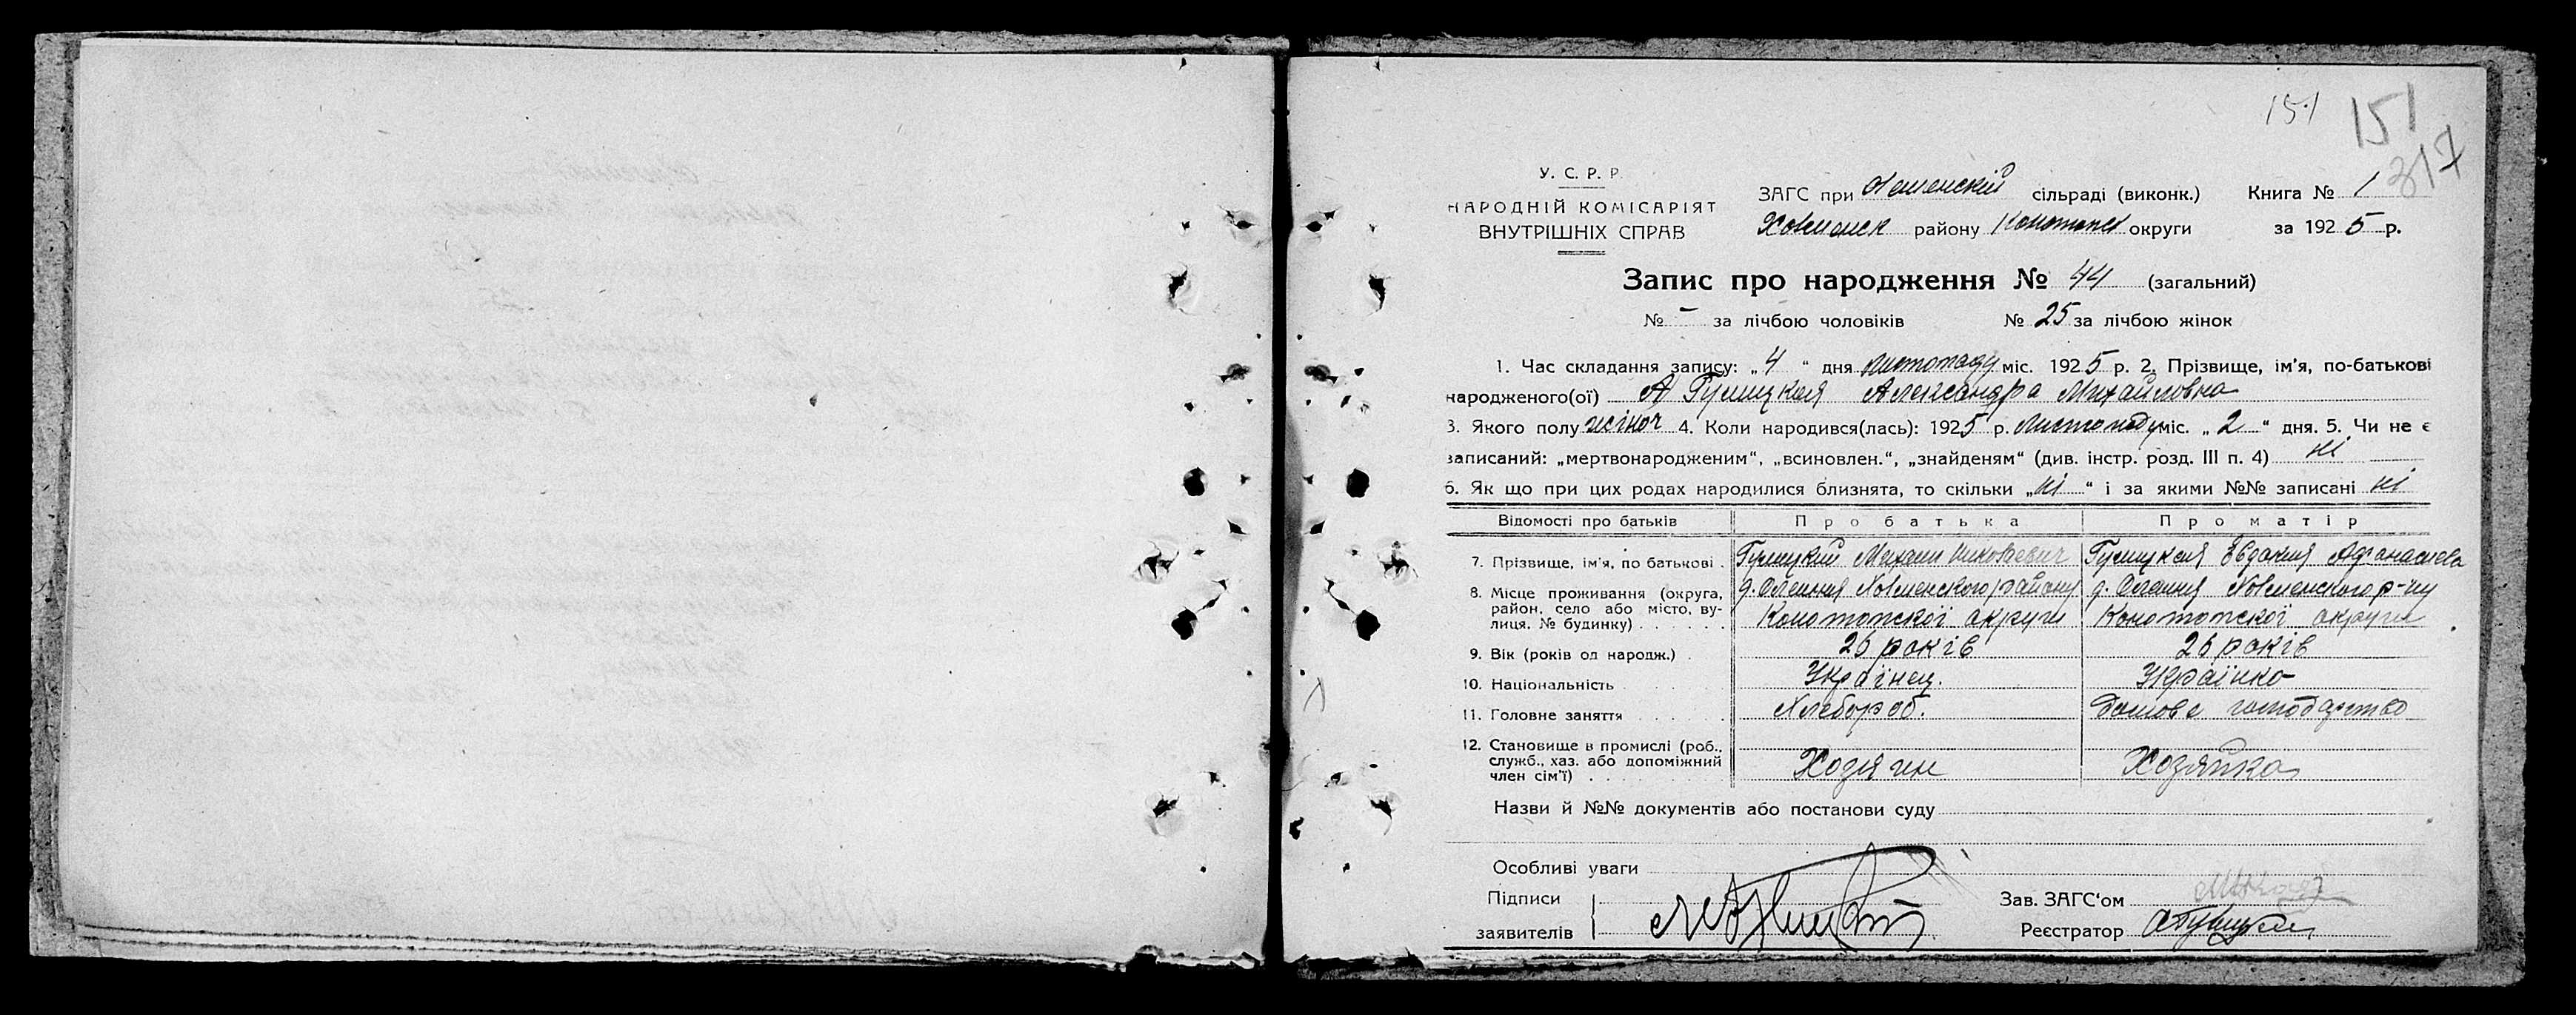 151
151
317
У. С. Р. Р.
НАРОДНІЙ КОМІСАРІЯТ
ВНУТРІШНІХ СПРАВ
ЗАГС при сільраді (виконк.) Книга № 1
району Конотопск округи за 1925 р.
Запис про народження № 44 (загальний)
№ - за лічбою чоловіків № 25 за лічбою жінок
1. Час складання запису: „4“ дня листопаду міс. 1925 р. 2. Прізвище, ім'я, по-батькові
народженого(ої) Александра Михайловна
3. Якого полу жіноч 4. Коли народився(лась): 1925 р. листопаду міс. „2“ дня. 5. Чи не є
записаний: „мертвонародженим“, „всиновлен.“, „знайденям“ (див. інстр. розд. III п. 4) ні
6. Як що при цих родах народилися близнята, то скільки „ні“ і за якими №№ записані ні
Відомості про батьків Про батька Про матір
7. Прізвище, ім'я, по батькові . Михаил Николаевич Евдокия
8. Місце проживання (округа,
район, село або місто, ву-
лиця, № будинку) . . . . . . Конотопської округи Конотопської округи
9. Вік (років од народж.) . 26 років 26 років
10. Національність . . . . . Українец. Українка
11. Головне заняття . . . . . Хлебороб. Домове господарство
12. Становище в промислі (роб.,
служб., хаз. або допоміжний
член сім'ї) . . . . Хозяин Хозяйка
Назви й №№ документів або постанови суду
Особливі уваги
Підписи
заявителів
Зав. ЗАГС'ом
Реєстратор